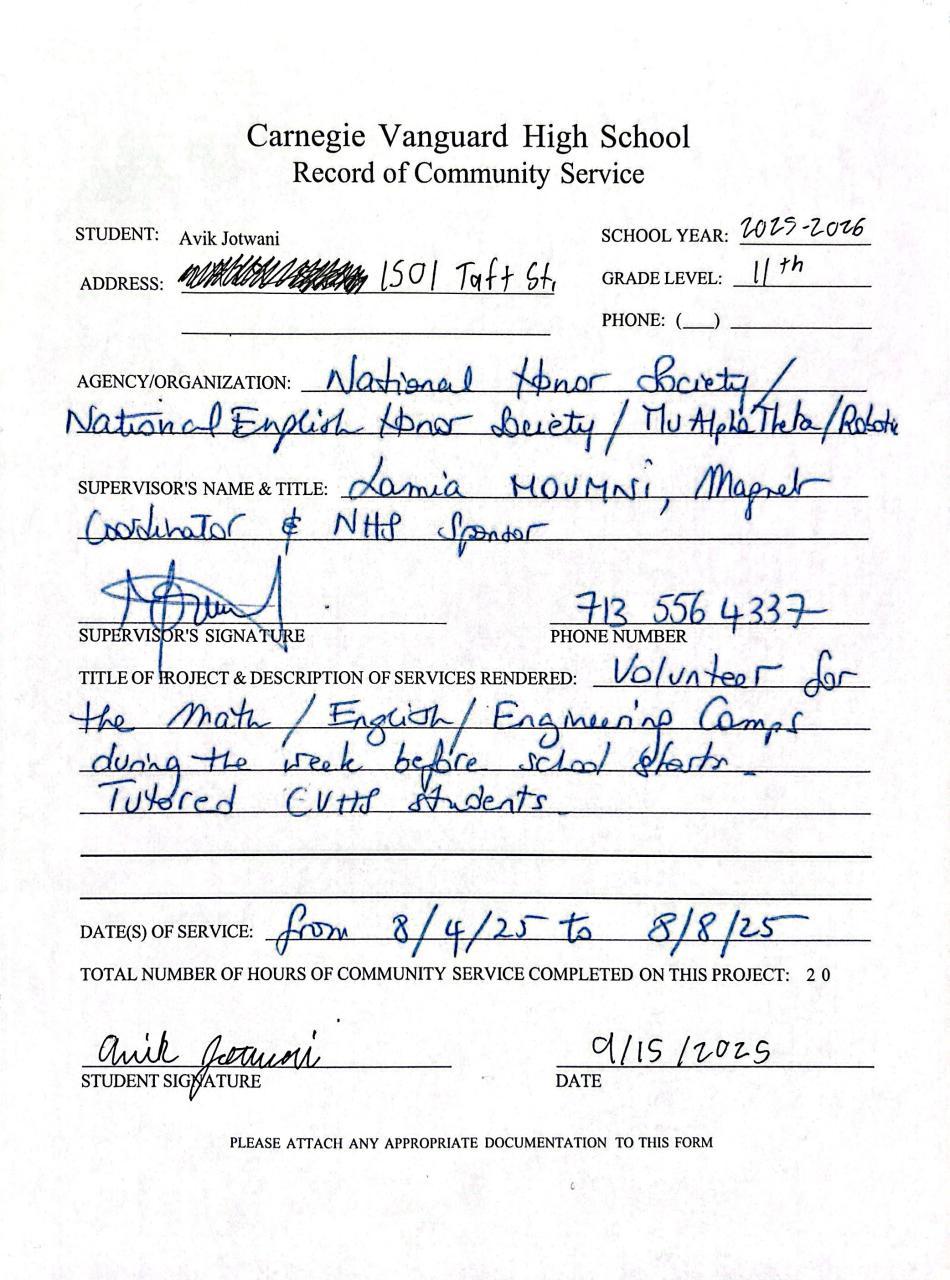 Carnegie Vanguard High School
Record of Community Service
STUDENT: Avik Jotwani
SCHOOL YEAR: 2025-2026
ADDRESS: 1501 Taft St,
GRADE LEVEL: 11th
PHONE: (__)
AGENCY/ORGANIZATION: National Honor Society/
National English Honor Society / Mu Alpha Theta/
SUPERVISOR'S NAME & TITLE: Lamia MOUMNI, Magnet
Coordinator & NHS Sponsor
713 556 4337
SUPERVISOR'S SIGNATURE PHONE NUMBER
TITLE OF PROJECT & DESCRIPTION OF SERVICES RENDERED: Volunteer for
the Math / English / Engineering Camps
during the week before school starts.
Tutored CVHS students.
DATE(S) OF SERVICE: from 8/4/25 to 8/8/25
TOTAL NUMBER OF HOURS OF COMMUNITY SERVICE COMPLETED ON THIS PROJECT: 20
Avik Jotwani 9/15/2025
STUDENT SIGNATURE DATE
PLEASE ATTACH ANY APPROPRIATE DOCUMENTATION TO THIS FORM